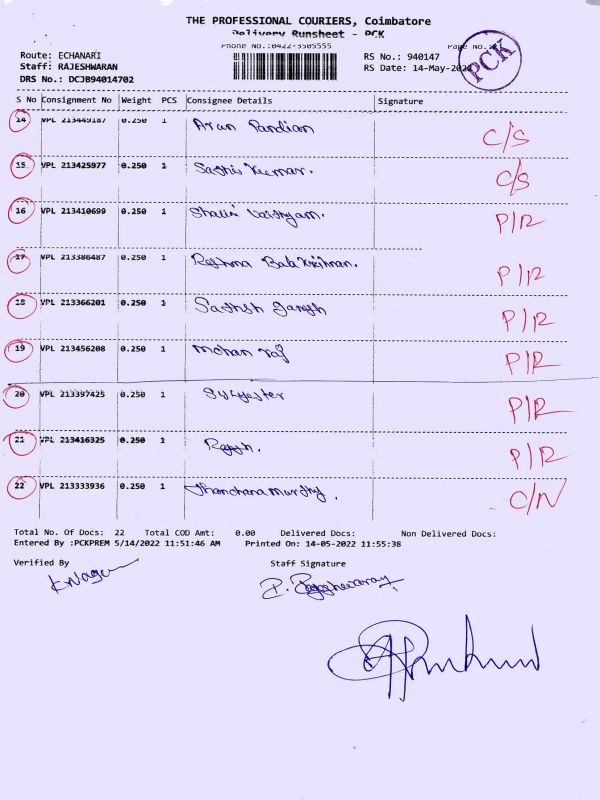 THE PROFESSIONAL COURIERS, Coimbatore
Delivery Runsheet - PCK
Phone No.:0422-3505555
Page No.:
Route: ECHANARI
RS No.: 940147
Staff: RAJESHWARAN
RS Date: 14-May-2022
DRS No.: DCJB94014702
PCK
S No Consignment No Weight PCS Consignee Details Signature
14 VPL 213449187 0.250 1 Arun Pandian C/S
15 VPL 213425977 0.250 1 Sasthi Kumar. C/S
16 VPL 213410699 0.250 1 Shalini P/R
17 VPL 213386487 0.250 1 Reshma Bala Krishnan. P/R
18 VPL 213366201 0.250 1 Sathish Ganesh P/R
19 VPL 213456208 0.250 1 Mohan Raj P/R
20 VPL 213397425 0.250 1 Sylyester P/R
21 VPL 213416325 0.250 1 P/R
22 VPL 213333936 0.250 1 C/N
Total No. Of Docs: 22 Total COD Amt: 0.00 Delivered Docs: Non Delivered Docs:
Entered By :PCKPREM 5/14/2022 11:51:46 AM Printed On: 14-05-2022 11:55:38
Verified By Staff Signature